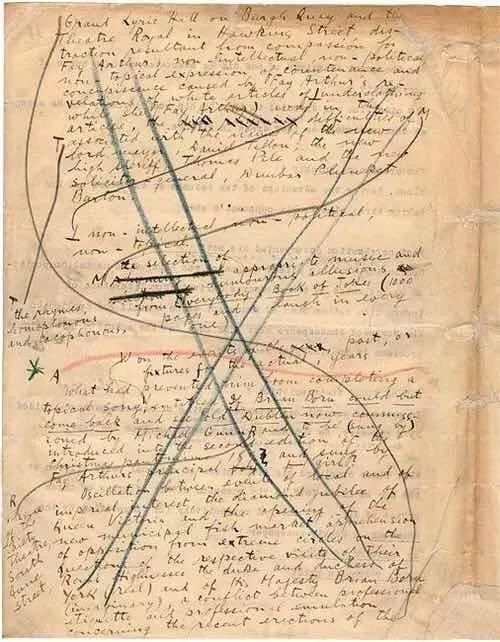 Grand Lyric Hall on Burgh Quay and the
Theatre Royal in Hawkins Street, dis-
traction resultant from compassion for
Fay Arthur's non-intellectual, non-political,
non-topical expression of countenance and
concupiscence caused by Fay Arthur's re-
velations of white articles of underclothing
while she (Fay Arthur) was in the
articles, the difficulties of
associated with the names of the new
lord mayor, Daniel Tallon, the new
high sheriff, Thomas Pile and the new
solicitor general, Dunbar Plunket
Barton.
I non-intellectual, non-political,
non-topical
the selection of
M appropriate music and
humorous allusions
from Everybody's Book of Jokes (1000
pages and a laugh in every
one)
T the rhymes,
homophonous
and cacophonous,
W on the events of the past, or
fixtures for the actual, years
A
What had prevented him from completing a
topical song, entitled If Brian Boru could but
come back and see old Dublin now commiss-
ioned by Michael Gunn R and to be sung by
introduced into the second edition of the
Christmas pantomime and sung by
principal girl?
Oscillation between events of local and of
imperial interest, the diamond jubilee of
Queen Victoria and the opening of the
new municipal fish market, apprehension
of opposition from extreme circles on the
questions of the respective visits of Their
Royal Highnesses the duke and duchess of
York (real) and of His Majesty Brian Boru
(imaginary), a conflict between professional
etiquette and professional emulation
concerning the recent erections of the
R
of the
Gaiety
Theatre,
South
King
street,